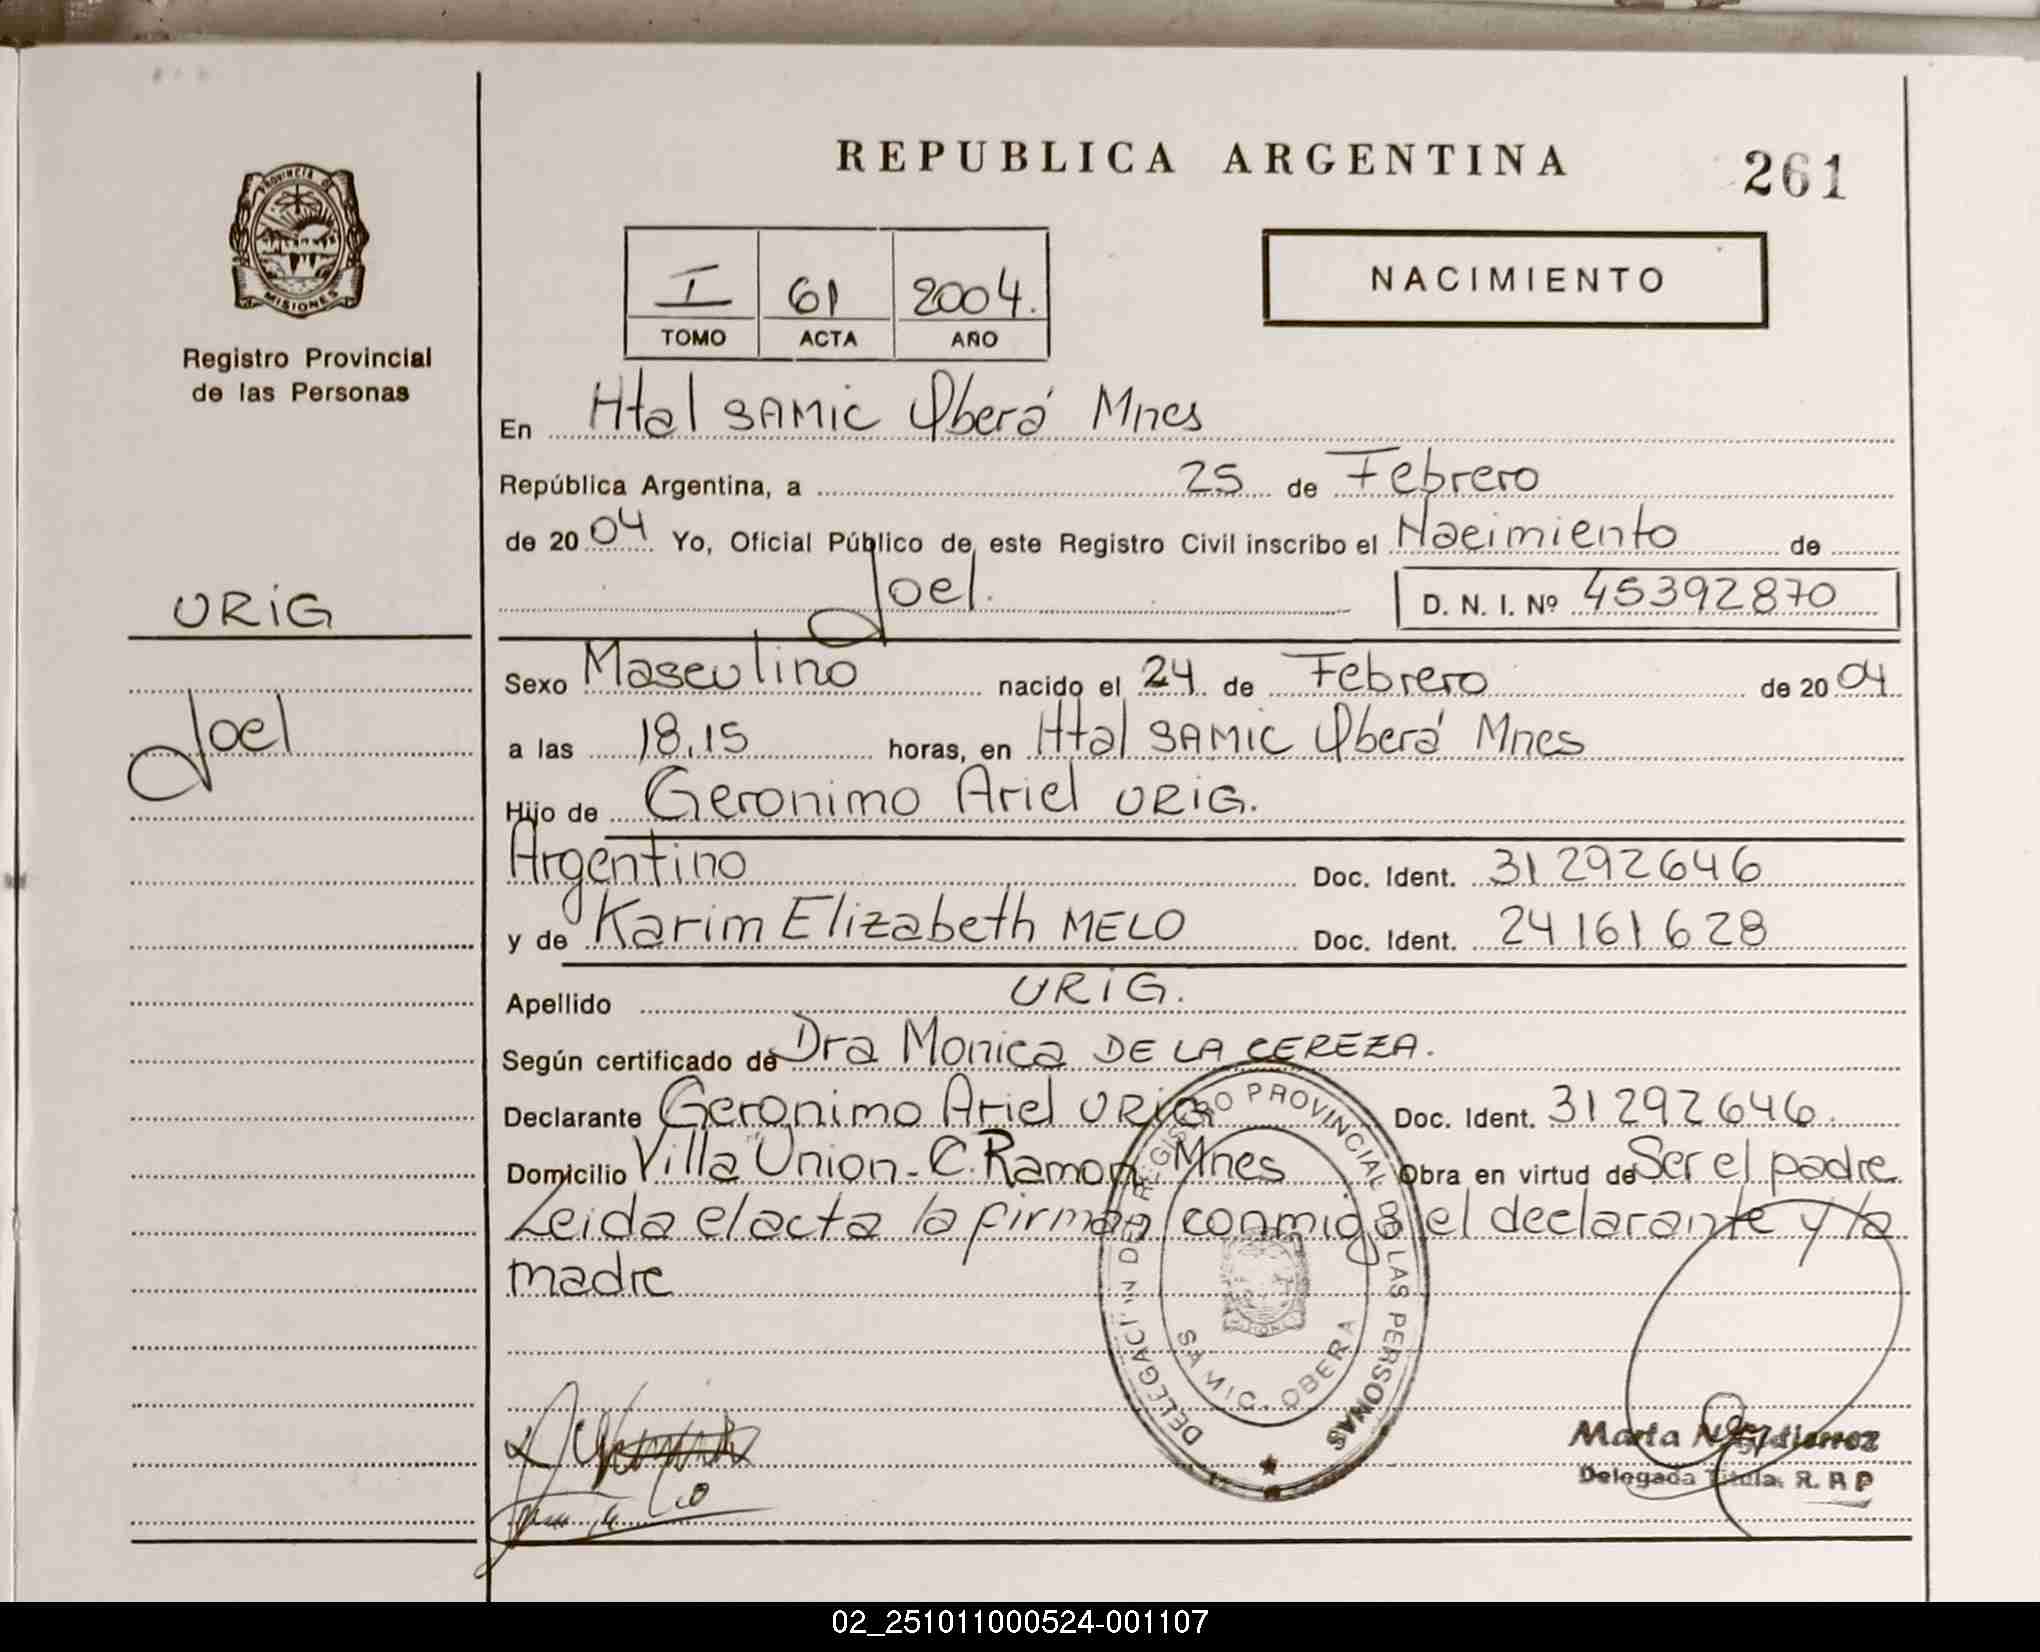 REPUBLICA ARGENTINA
261
PROVINCIA DE
MISIONES
Registro Provincial
de las Personas
I 61 2004.
TOMO ACTA AÑO
NACIMIENTO
En Htal SAMIC Oberá Mnes
República Argentina, a 25 de Febrero
de 2004 Yo, Oficial Público de este Registro Civil inscribo el Nacimiento de
Joel. D. N. I. Nº 45392870
URiG
Joel
Sexo Masculino nacido el 24 de Febrero de 2004
a las 18.15 horas, en Htal SAMIC Oberá Mnes
Hijo de Geronimo Ariel URiG.
Argentino Doc. Ident. 31292646
y de Karim Elizabeth MELO Doc. Ident. 24161628
Apellido URiG.
Según certificado de Dra Monica DE LA CEREZA.
Declarante Geronimo Ariel URiG Doc. Ident. 31292646.
Domicilio Villa Union - C. Ramon Mnes Obra en virtud de Ser el padre
Leida el acta la firman conmigo el declarante y la
madre
REGISTRO PROVINCIAL DE LAS PERSONAS
SAMIC. OBERA
Marta N. Gutierrez
Delegada Titula. R. R P
02_251011000524-001107